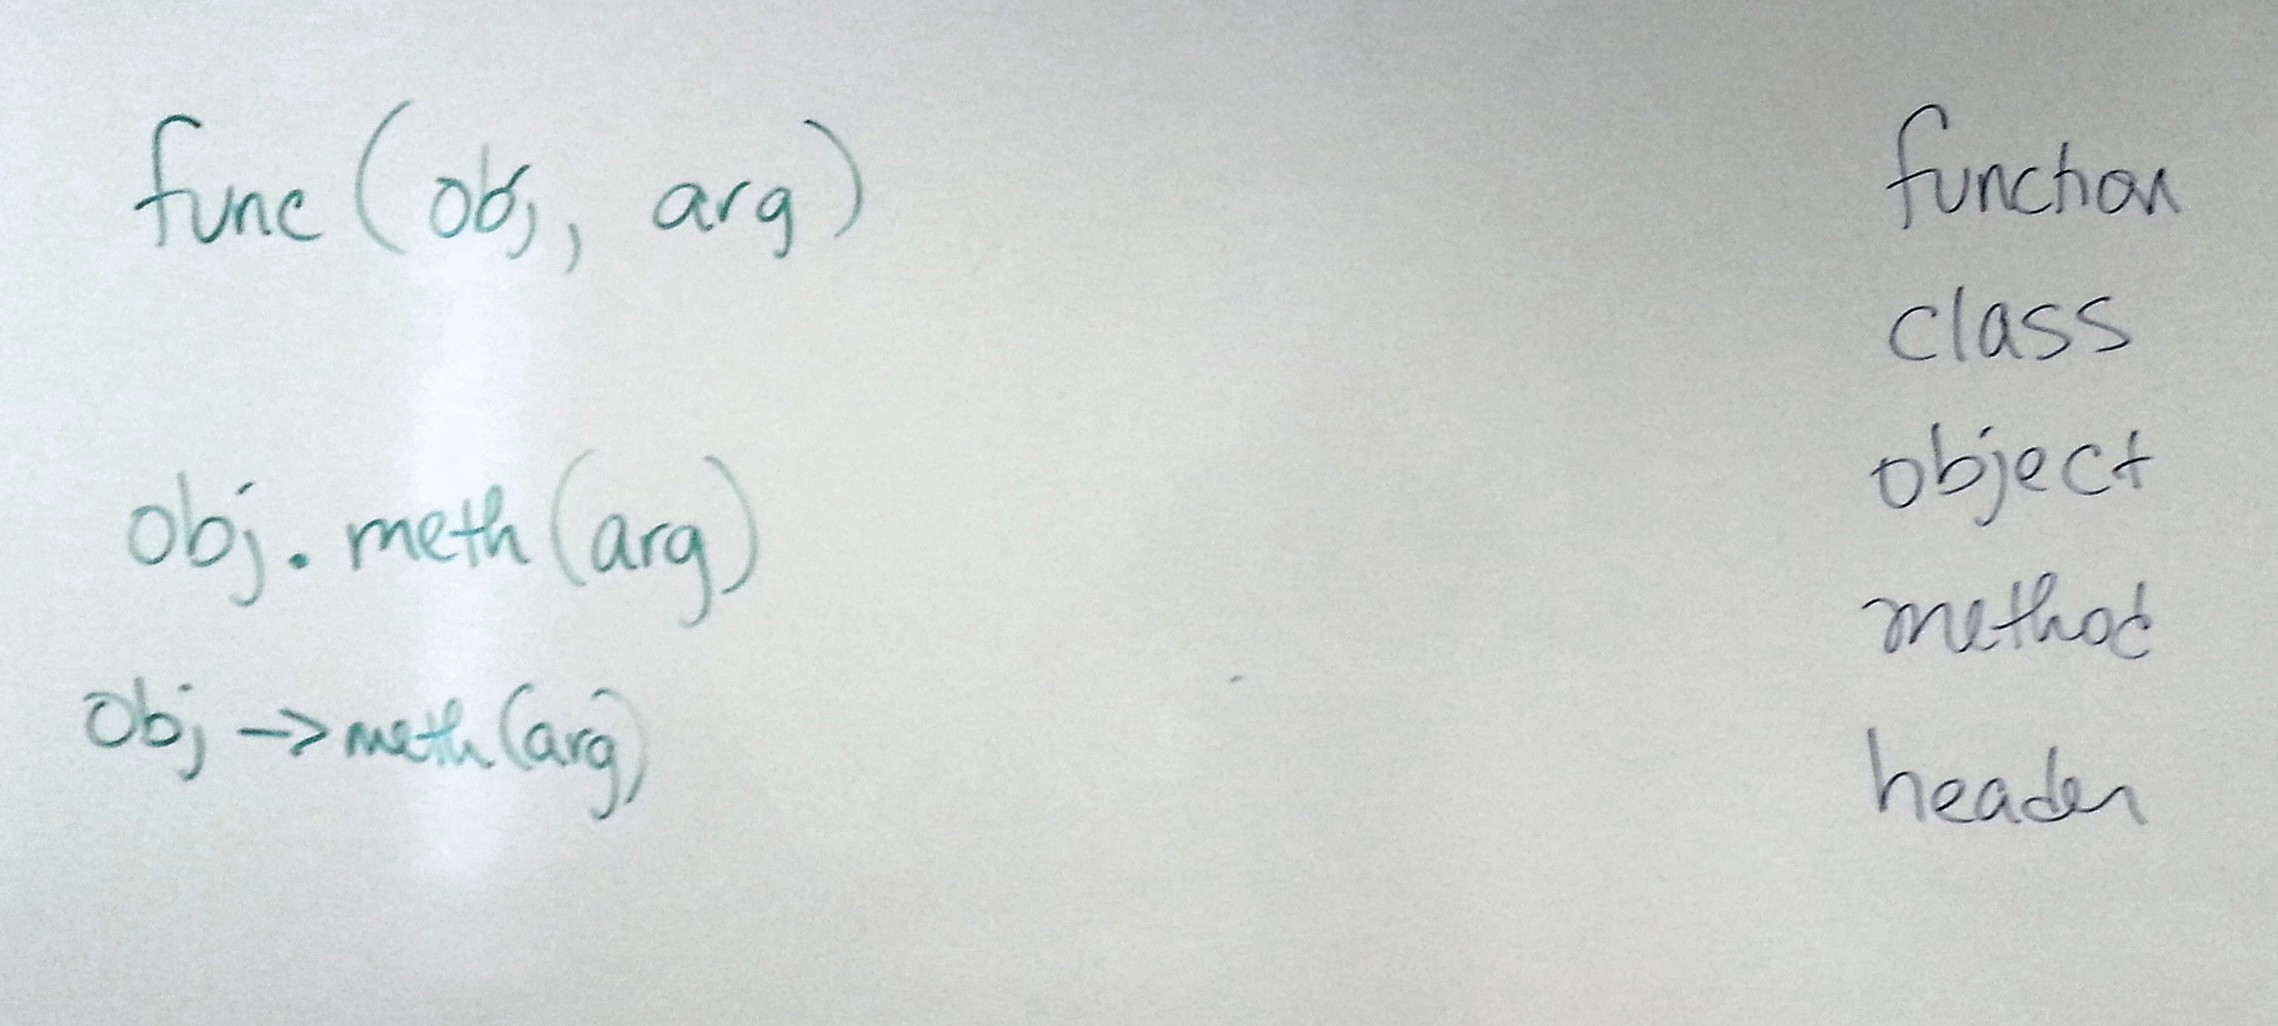 func (obj, arg)
obj. meth (arg)
obj -> meth (arg)
function
class
object
method
header